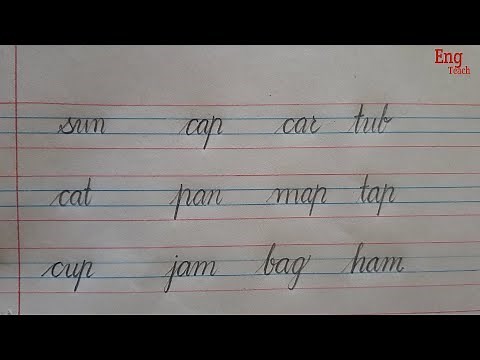 Eng
Teach
sun cap car tub
cat pan map tap
cup jam bag ham